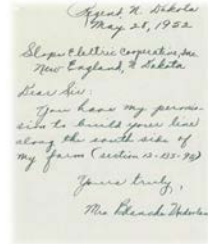 Regent, N. Dakota
May 28, 1952
Slope Electric Cooperative, Inc
New England, N Dakota
Dear Sir:
You have my permis-
sion to build your line
along the south side of
my farm (section 13-135-98)
Yours truly,
Mrs Blanche